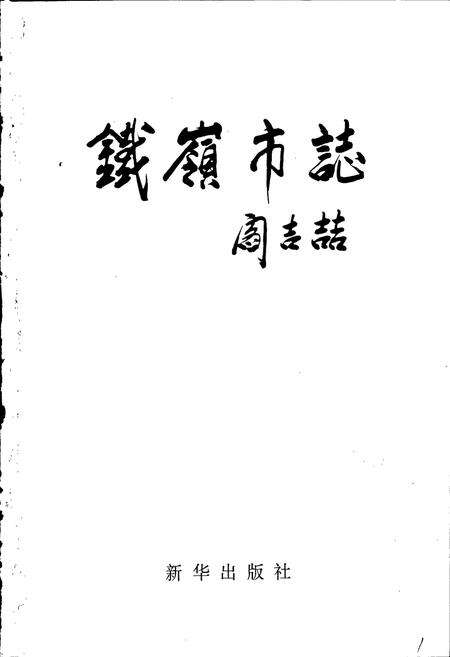 鐵嶺市誌
阎吉喆
新华出版社
1